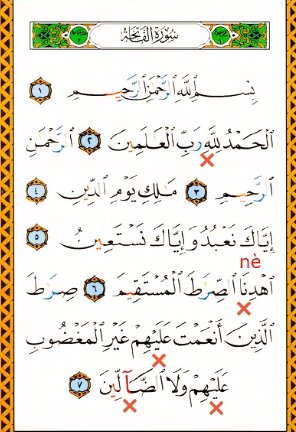 سُورَةُ الْفَاتِحَةِ
بِسْمِ اللَّهِ الرَّحْمَٰنِ الرَّحِيمِ ١
الْحَمْدُ لِلَّهِ رَبِّ الْعَالَمِينَ ٢ الرَّحْمَٰنِ
الرَّحِيمِ ٣ مَالِكِ يَوْمِ الدِّينِ ٤
إِيَّاكَ نَعْبُدُ وَإِيَّاكَ نَسْتَعِينُ ٥
nè
اهْدِنَا الصِّرَاطَ الْمُسْتَقِيمَ ٦ صِرَاطَ
الَّذِينَ أَنْعَمْتَ عَلَيْهِمْ غَيْرِ الْمَغْضُوبِ
عَلَيْهِمْ وَلَا الضَّالِّينَ ٧